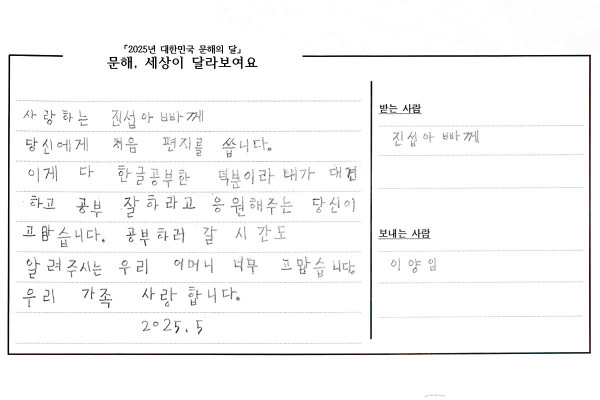 『2025년 대한민국 문해의 달』
문해, 세상이 달라보여요
사랑하는 진섭아빠께
당신에게 처음 편지를 씁니다.
이게 다 한글공부한 덕분이라 내가 대견
하고 공부 잘하라고 응원해주는 당신이
고맙습니다. 공부하러 갈 시간도
알려주시는 우리 어머니 너무 고맙습니다
우리 가족 사랑합니다.
2025.5
받는 사람
진섭아빠께
보내는 사람
이양임